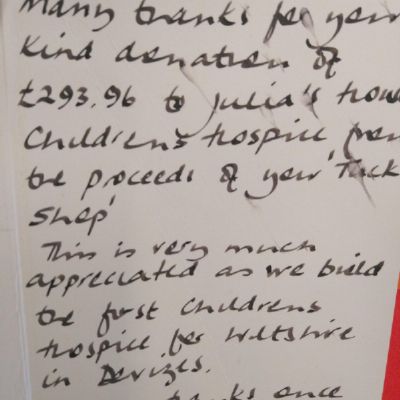 Many thanks for your
kind donation of
£293.96 to Julia's
Children's Hospice from
the proceeds of your 'Tuck
Shop'
This is very much
appreciated as we build
the first Childrens
Hospice for Wiltshire
in Devizes.
thanks once